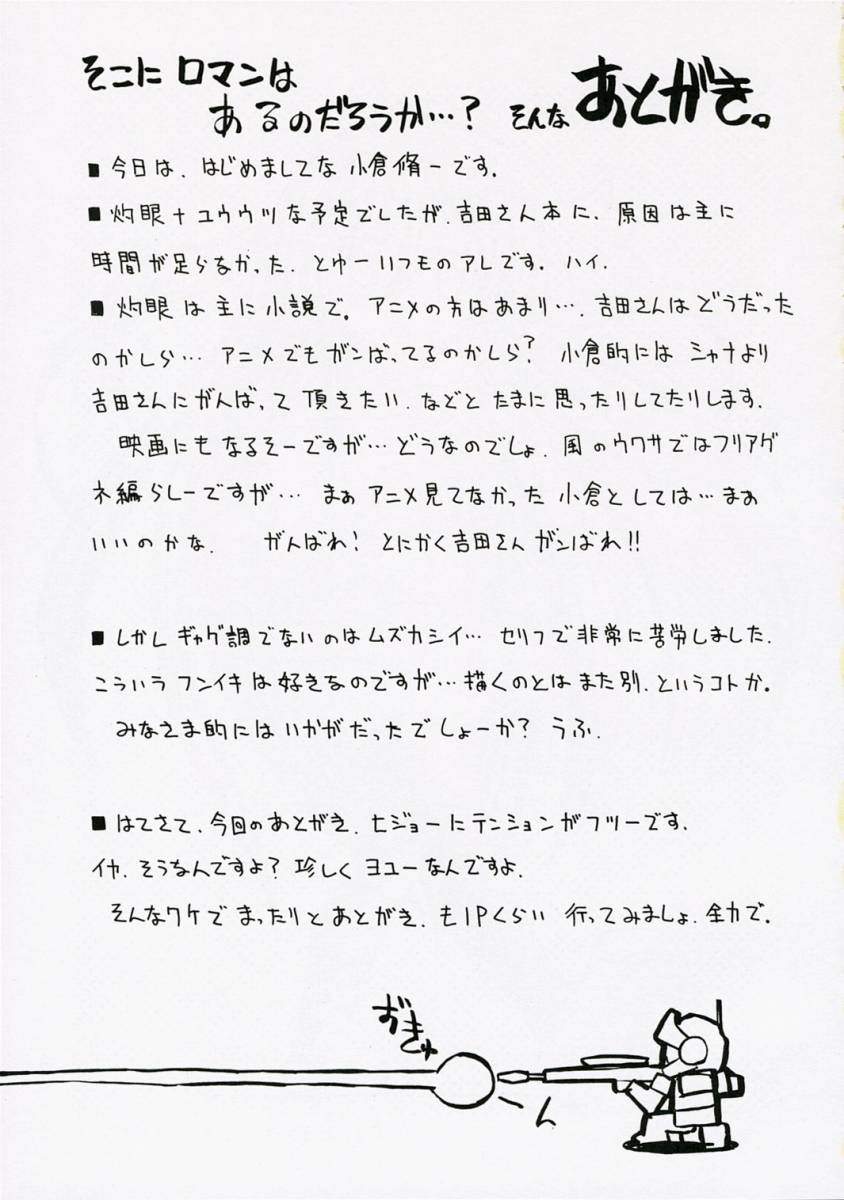 そこにロマンは
あるのだろうか…? そんな あとがき。
■今日は、はじめましてな 小倉脩一です。
■灼眼+ユウウツな予定でしたが、吉田さん本に、原因は主に
時間が足らなかった、とゆーいつものアレです。ハイ、
■灼眼は主に小説で。アニメの方はあまり…、吉田さんはどうだった
のかしら… アニメでもガンばってるのかしら? 小倉的には シャナより
吉田さんにがんばって頂きたい、などと たまに思ったりしてたりします。
映画にもなるそーですが…どうなのでしょ、風のウワサではフリアグ
ネ編らしーですが… まぁ アニメ見てなかった 小倉としては…まぁ
いいのかな、 がんばれ! とにかく吉田さん ガンばれ!!
■しかし ギャグ調でないのはムズカシイ… セリフで非常に苦労しました、
こういう フンイキは好きなのですが…描くのとは また別、というコトか。
みなさま的にはいかがだったでしょーか? うふ、
■はてさて、今回のあとがき、ヒジョーにテンションがフツーです、
イヤ、そうなんですよ? 珍しく ヨユーなんですよ、
そんなワケで まったりと あとがき、も1Pくらい 行ってみましょ、全力で。
おきゅ
ーん